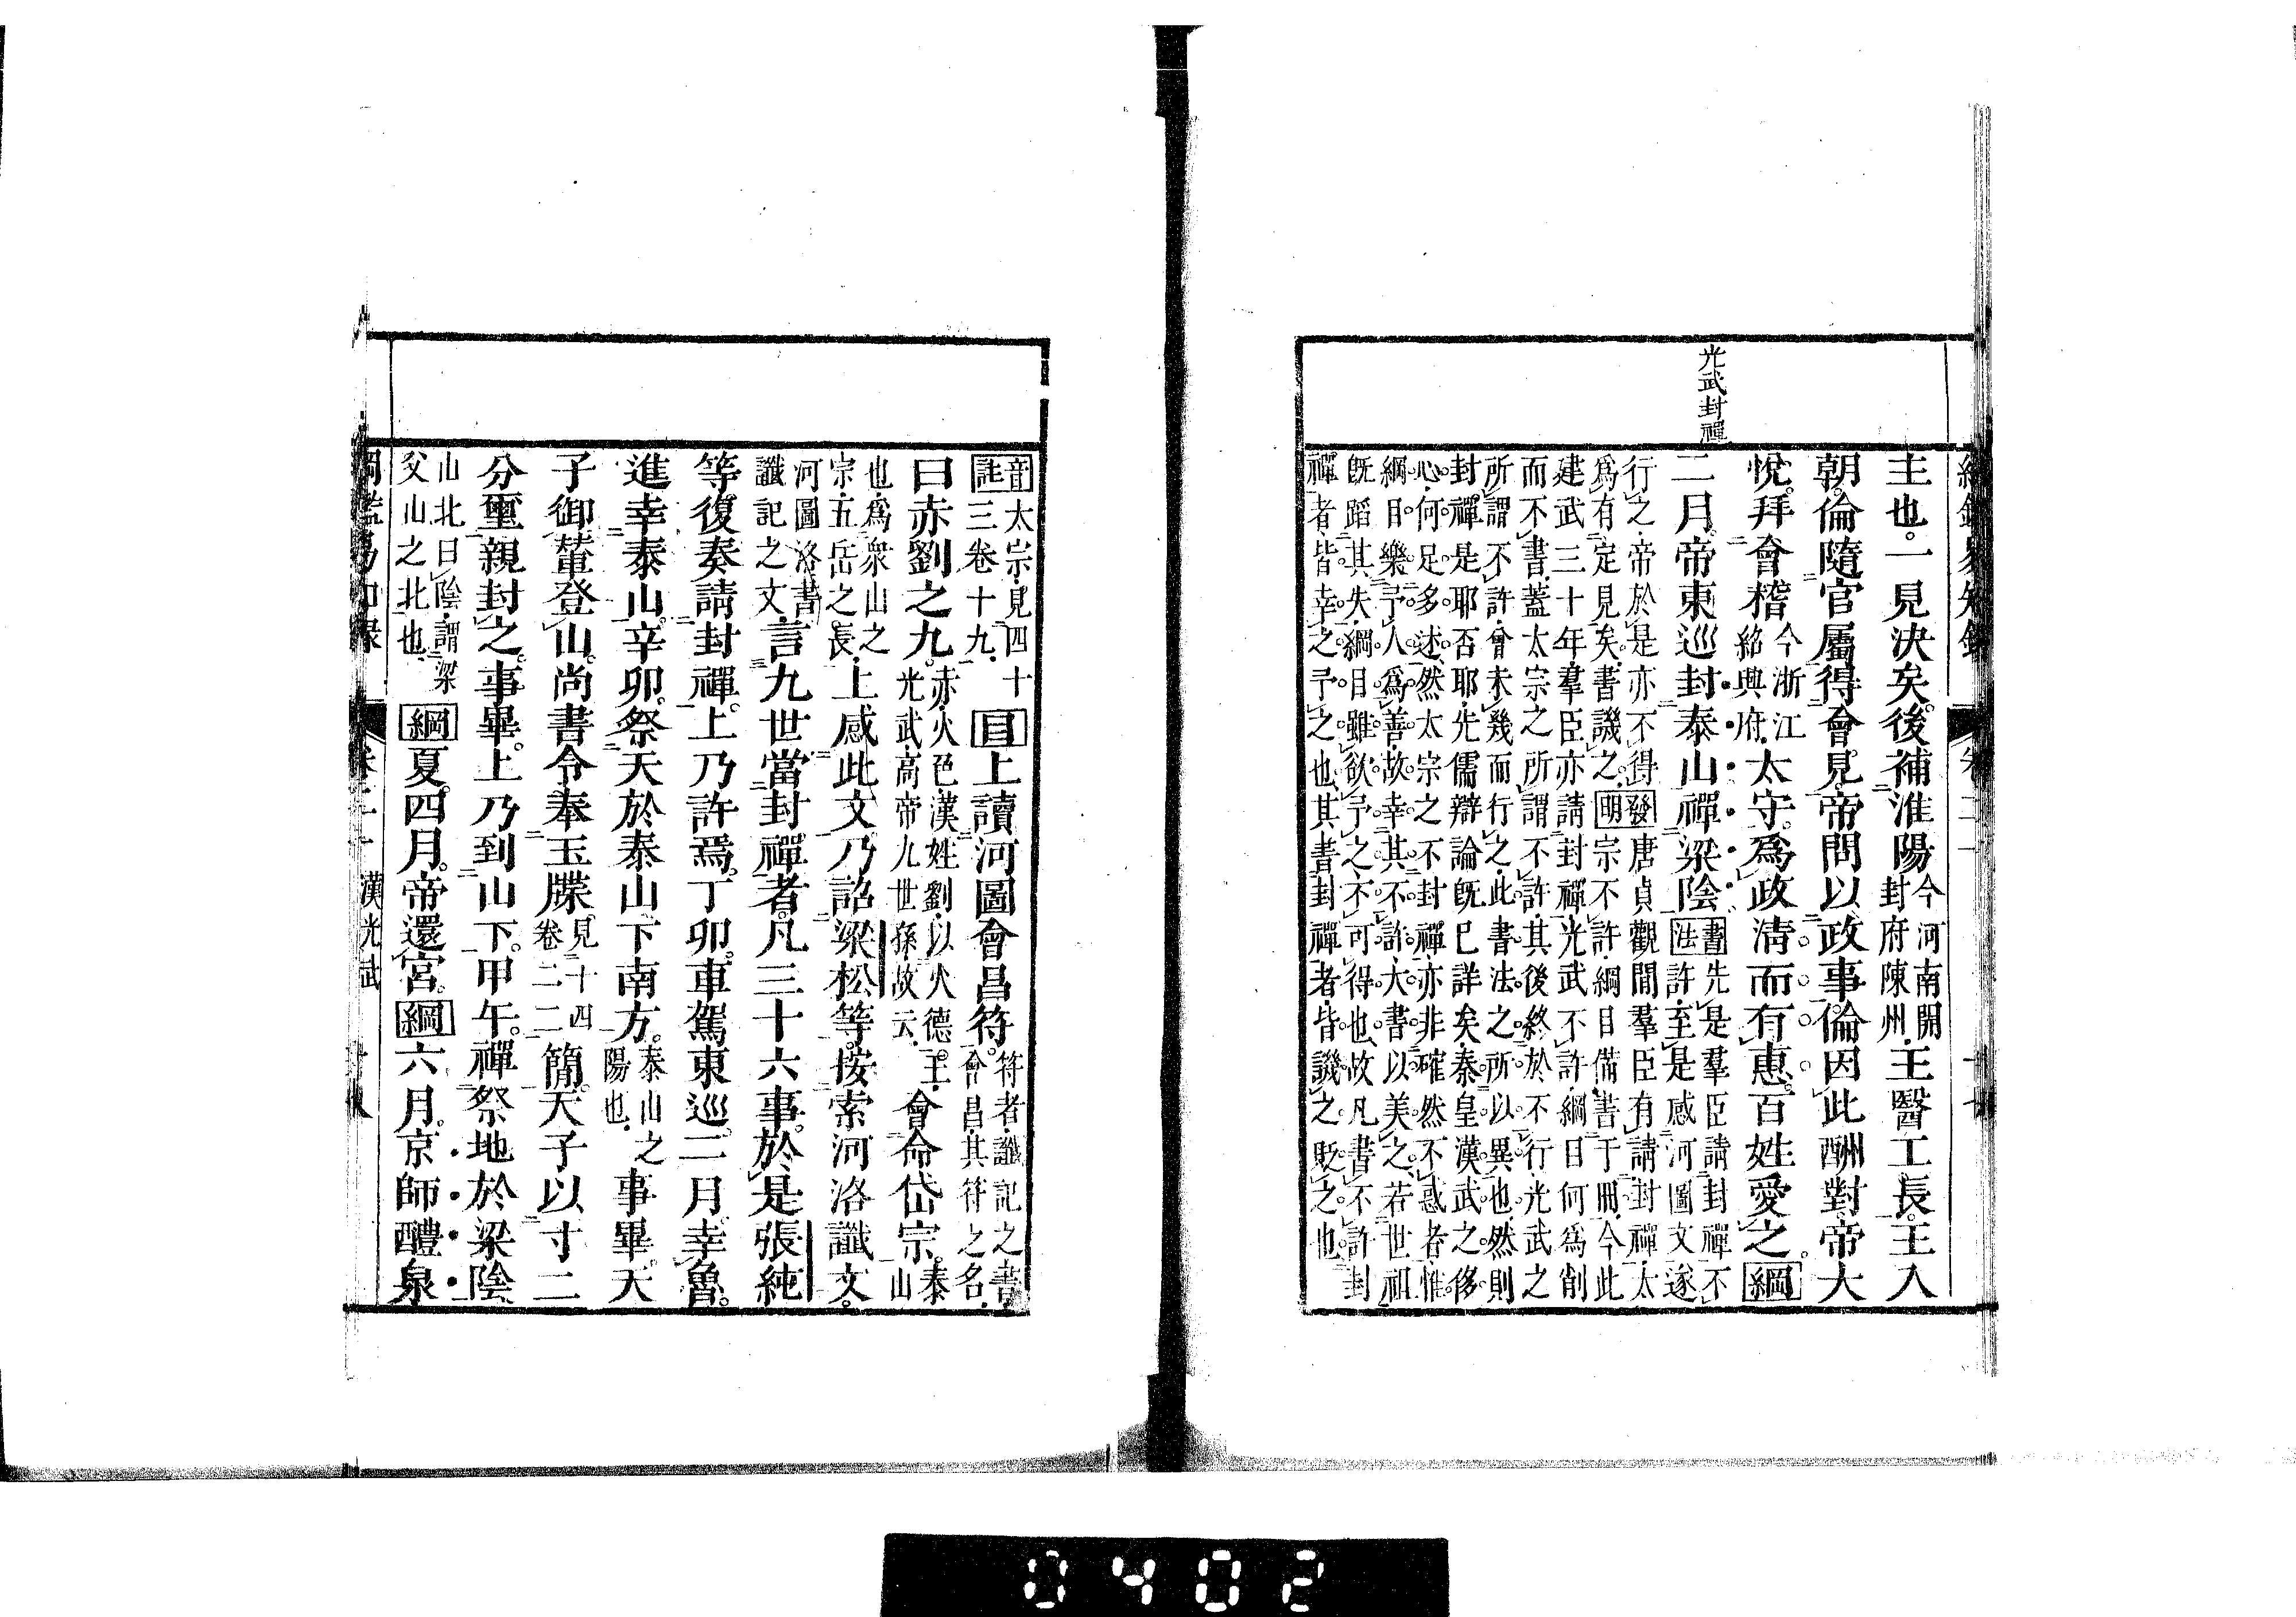 光武封禪
主也一見決矣後補淮陽今河南開封府陳州王醫工長王入
朝倫隨官屬得會見帝問以政事倫因此酬對帝大
悅拜會稽今浙江紹興府太守爲政淸而有惠百姓愛之綱
二月帝東巡封泰山禪梁陰書法先是羣臣請封禪不許至是感河圖文遂
行之帝於是亦不得爲有定見矣書譏之發明唐貞觀閒羣臣有請封禪太宗不許綱目備書于冊今此
建武三十年羣臣亦請封禪光武不許綱目何爲削而不書蓋太宗之所謂不許其後終於不行光武之
所謂不許會未幾而行之此書法之所以異也然則封禪是耶否耶先儒辯論旣已詳矣秦皇漢武之侈
心何足多述然太宗之不封禪亦非確然不惑者惟綱目樂予人爲善故幸其不許大書以美之若世祖
旣蹈其失綱目雖欲予之不可得也故凡書不許封禪者皆幸之予之也其書封禪者皆譏之貶之也
音註太宗見四十三卷十九目上讀河圖會昌符符者讖記之書會昌其符之名
曰赤劉之九赤火色漢姓劉以火德王光武高帝九世孫故云會命岱宗泰山
也爲衆山之宗五岳之長上感此文乃詔梁松等按索河洛讖文
河圖洛書讖記之文言九世當封禪者凡三十六事於是張純
等復奏請封禪上乃許焉丁卯車駕東巡二月幸魯
進幸泰山辛卯祭天於泰山下南方泰山之陽也事畢天
子御輦登山尚書令奉玉牒見十四卷二二簡天子以寸二
分璽親封之事畢上乃到山下甲午禪祭地於梁陰
山北曰陰謂梁父山之北也綱夏四月帝還宮綱六月京師醴泉
漢光武
0402